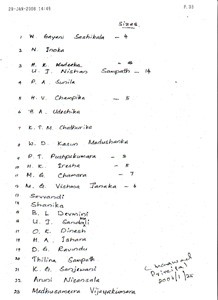 29-JAN-2006 14:49 P.03
Sizes
1 W. Gayani Sashikala - 4
2 N. Inoka
3 H. K. Nadeeka
U. I. Nishan Sampath - 14
4 P. A. Sunila
5 H. V. Champika - 5
6 H. A. Udeshika
7 K. T. M. Chathurika
8 W. D. Kasun Madushanka
9 P. T. Pushpakumara - 5
10 H. K. Iresha - 5
11 M. G. Chamara - 7
12 M. G. Vishwa Janaka - 6
13 Sevvandi
14 Shanika
15 B. L. Devmini
16 U. I. Sandali
17 O. K. Dinesh
18 H. A. Ishara
19 D. G. Ravindu
20 Thilina Sampath
21 K. G. Sanjeewani
22 Aruni Nisansala
23 Madhusameera Vijayakumara
Principal
2006/1/26